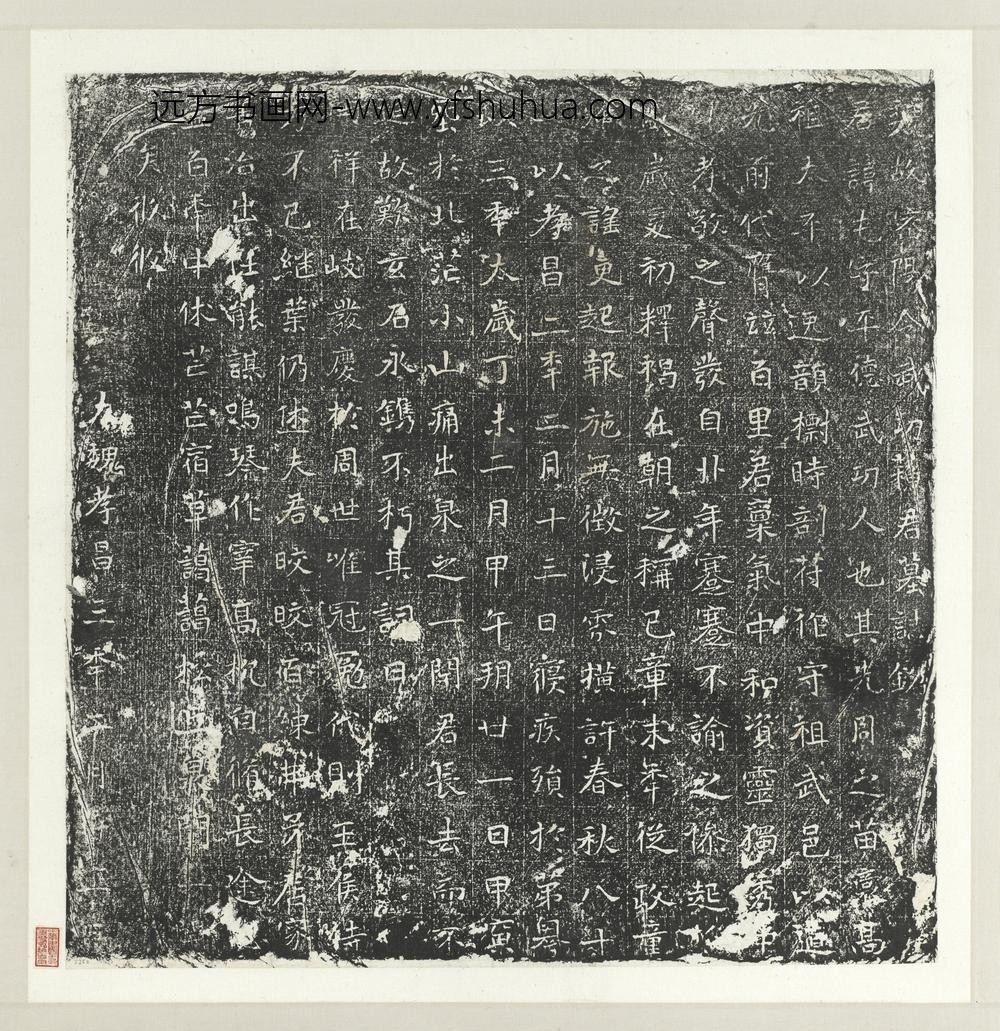 远方书画网-www.yfshuhua.com
故密陽令武功蘇君墓誌銘
君諱屯字平德武功人也其先周之苗裔高
祖太不以逸韻檦時剖苻作守祖武邑以道
光前代胥竝百里君稟氣中和資靈獨秀
孝敬之聲發自丱年蹇蹇不諭之徽起
歲爰初釋褐在朝之稱已章末年從政童
之謡更起報施無徵浸雰橫許春秋八十
以孝昌二秊二月十三日寢疾殞於第粵
三秊太歲丁未二月甲午朔廿一日甲寅
於北茫小山痛出泉之一閟君長去而不
故歎玄石永鐫不朽其詞曰
祥在岐發慶於周世唯冠冕代則王侯
不已継葉仍夫君皎皎百練居家
冶出任能謀鳴琴作宰高枕自脩長途
百年中休芒芒宿草藹藹泉門
矣攸攸
大魏孝昌三秊二月